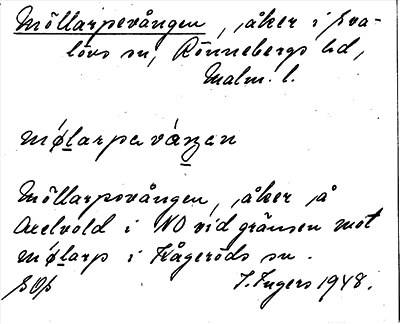 Möllarpevången, åker i Sva-
lövs sn, Rönnebergs hd,
Malm. l.
møḻarpavánen
Möllarpsvången, åker å
Axelvold i NO vid gränsen mot
møḻarp i Kågeröds sn.
J. Ingers 1948.